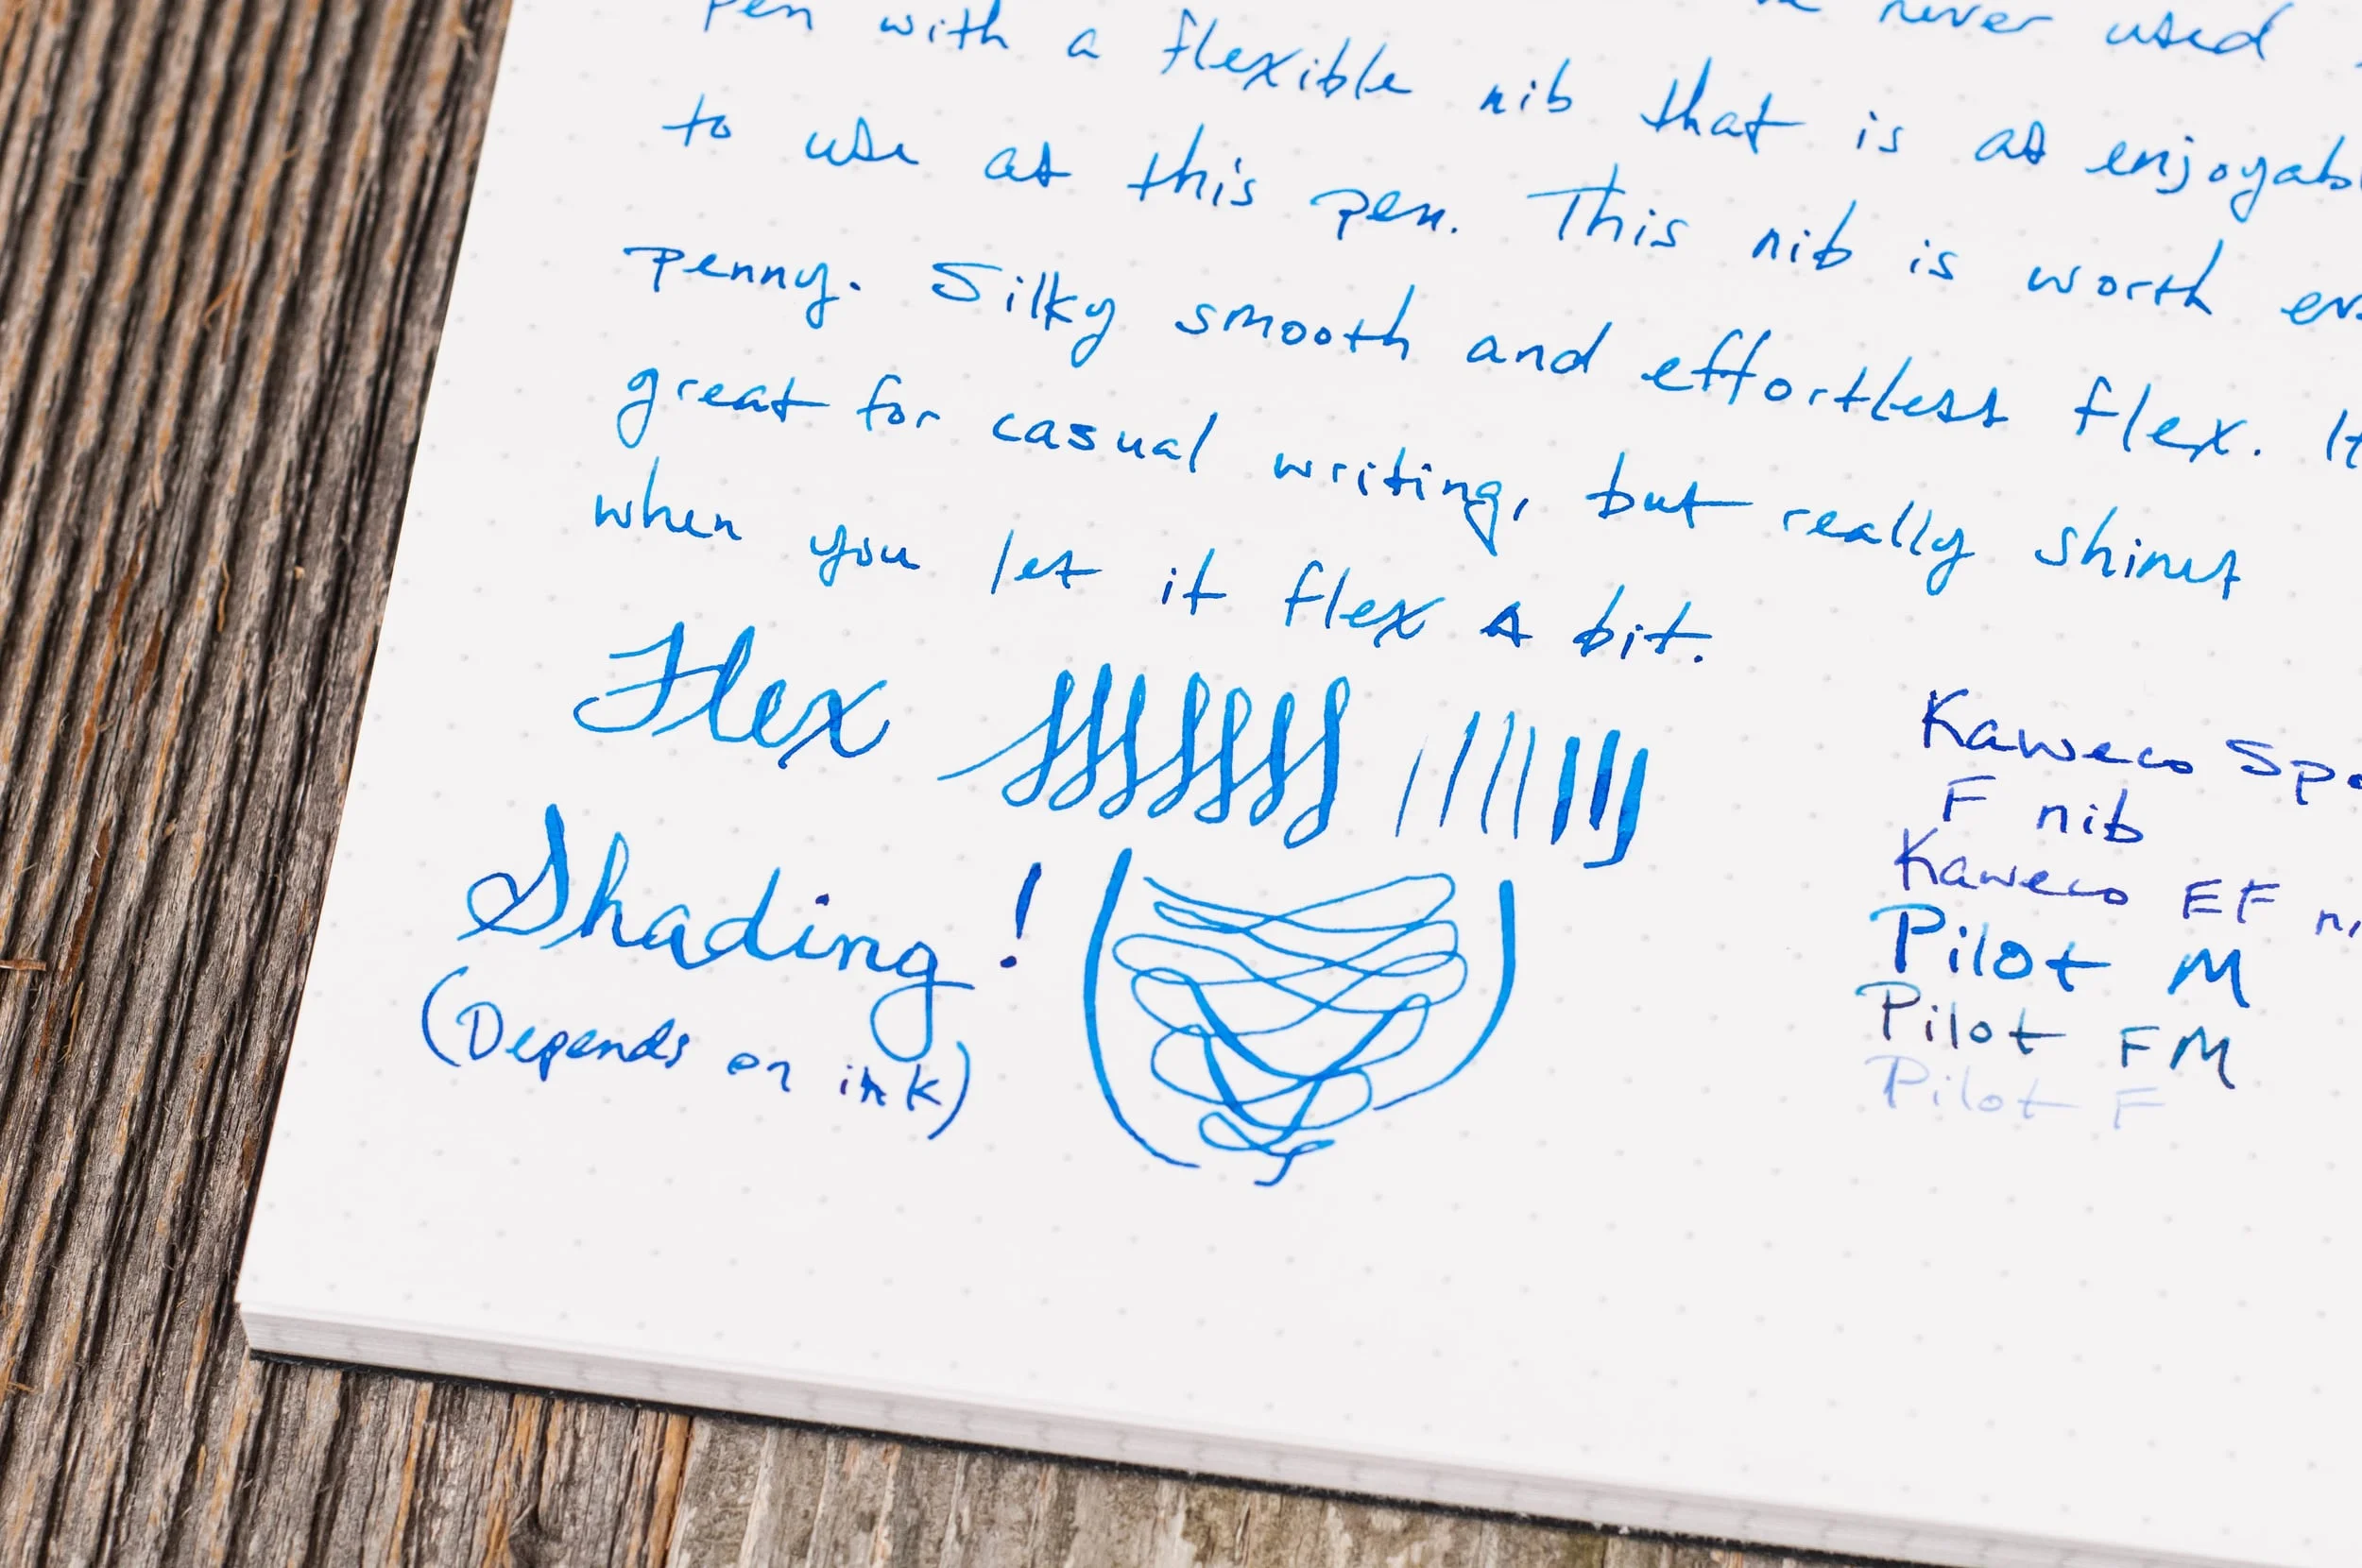 pen with a flexible nib that is as
never used
to use as this pen. This nib is worth
penny. Silky smooth and effortless flex.
great for casual writing, but really shines
when you let it flex a bit.
Flex
Shading!
(Depends on ink)
Kaweco
F nib
Kaweco EF
Pilot M
Pilot FM
Pilot F